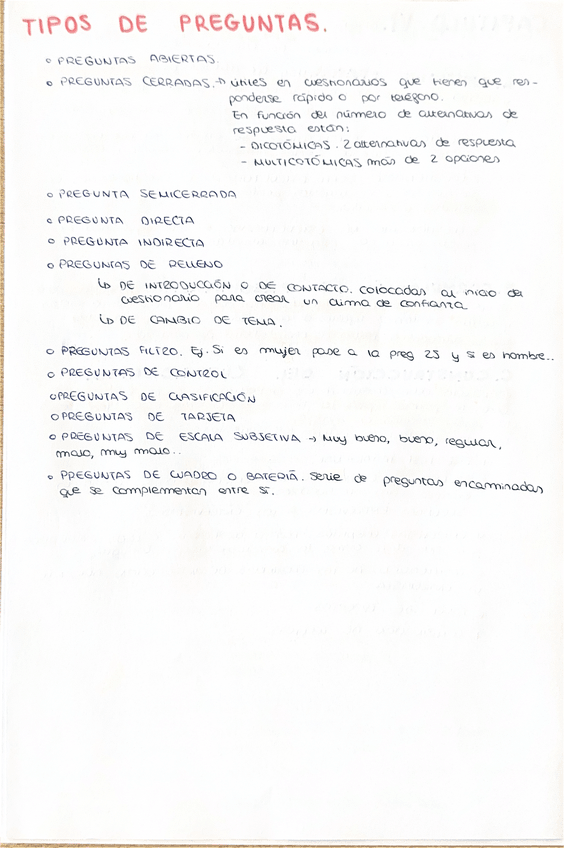 TIPOS DE PREGUNTAS.
○ PREGUNTAS ABIERTAS.
○ PREGUNTAS CERRADAS. → útiles en cuestionarios que tienen que res-
ponderse rápido o por teléfono.
En función del número de alternativas de
respuesta están:
- DICOTÓMICAS. 2 alternativas de respuesta
- MULTICOTÓMICAS más de 2 opciones
○ PREGUNTA SEMICERRADA
○ PREGUNTA DIRECTA
○ PREGUNTA INDIRECTA
○ PREGUNTAS DE RELLENO
↳ DE INTRODUCCIÓN O DE CONTACTO. colocadas al inicio del
cuestionario para crear un clima de confianza
↳ DE CAMBIO DE TEMA.
○ PREGUNTAS FILTRO. Ej. Si es mujer pase a la preg 25 y si es hombre..
○ PREGUNTAS DE CONTROL
○ PREGUNTAS DE CLASIFICACIÓN
○ PREGUNTAS DE TARJETA
○ PREGUNTAS DE ESCALA SUBJETIVA → Muy bueno, bueno, regular,
malo, muy malo..
○ PREGUNTAS DE CUADRO O BATERIA. serie de preguntas encaminadas
que se complementan entre si.